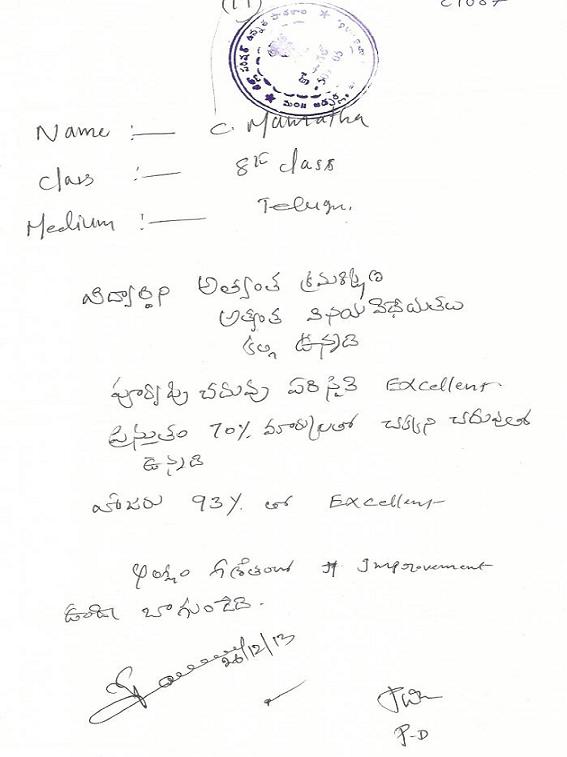 (11)
C1087
Name :— C. Mamatha
Class :— 8th class
Medium :— Telugu.
విద్యార్థిని అత్యంత క్రమశిక్షణ
అత్యంత వినయ విధేయతలు
కల్గి ఉన్నది
పూర్వపు చదువు పరిస్థితి Excellent.
ప్రస్తుతం 70% మార్కులతో చక్కని చదువుతో
ఉన్నది
హాజరు 93% తో Excellent
గణితంలో Improvement
ఉంటే బాగుండేది.
26/12/13
P-D